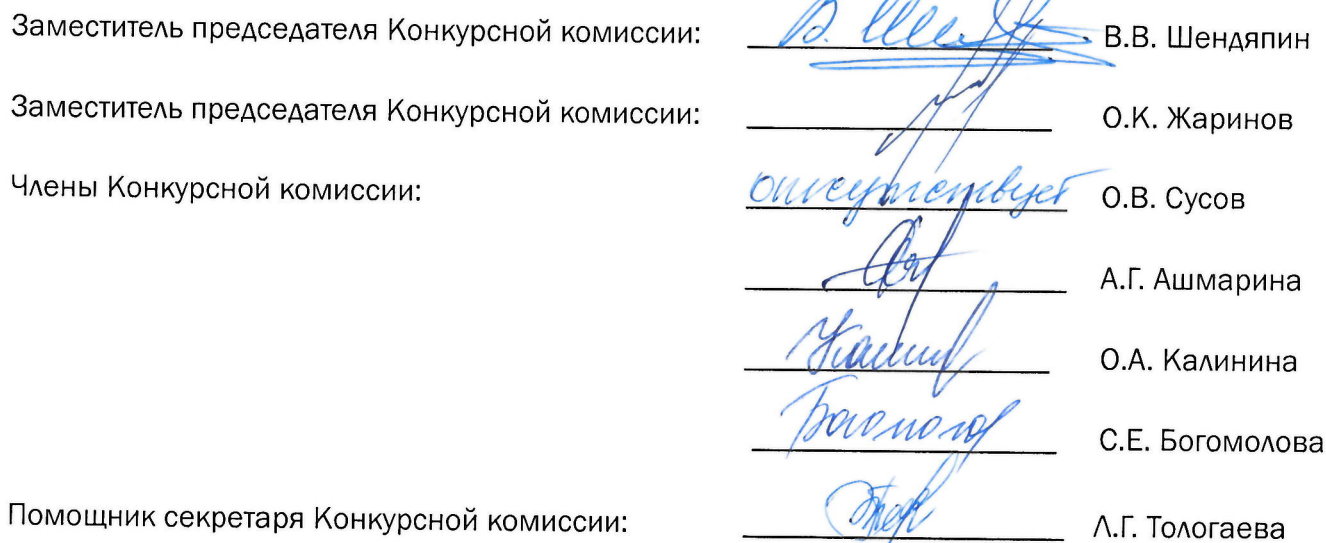 Заместитель председателя Конкурсной комиссии: В.В. Шендяпин
Заместитель председателя Конкурсной комиссии: О.К. Жаринов
Члены Конкурсной комиссии: отсутствует О.В. Сусов
А.Г. Ашмарина
О.А. Калинина
С.Е. Богомолова
Помощник секретаря Конкурсной комиссии: Л.Г. Тологаева